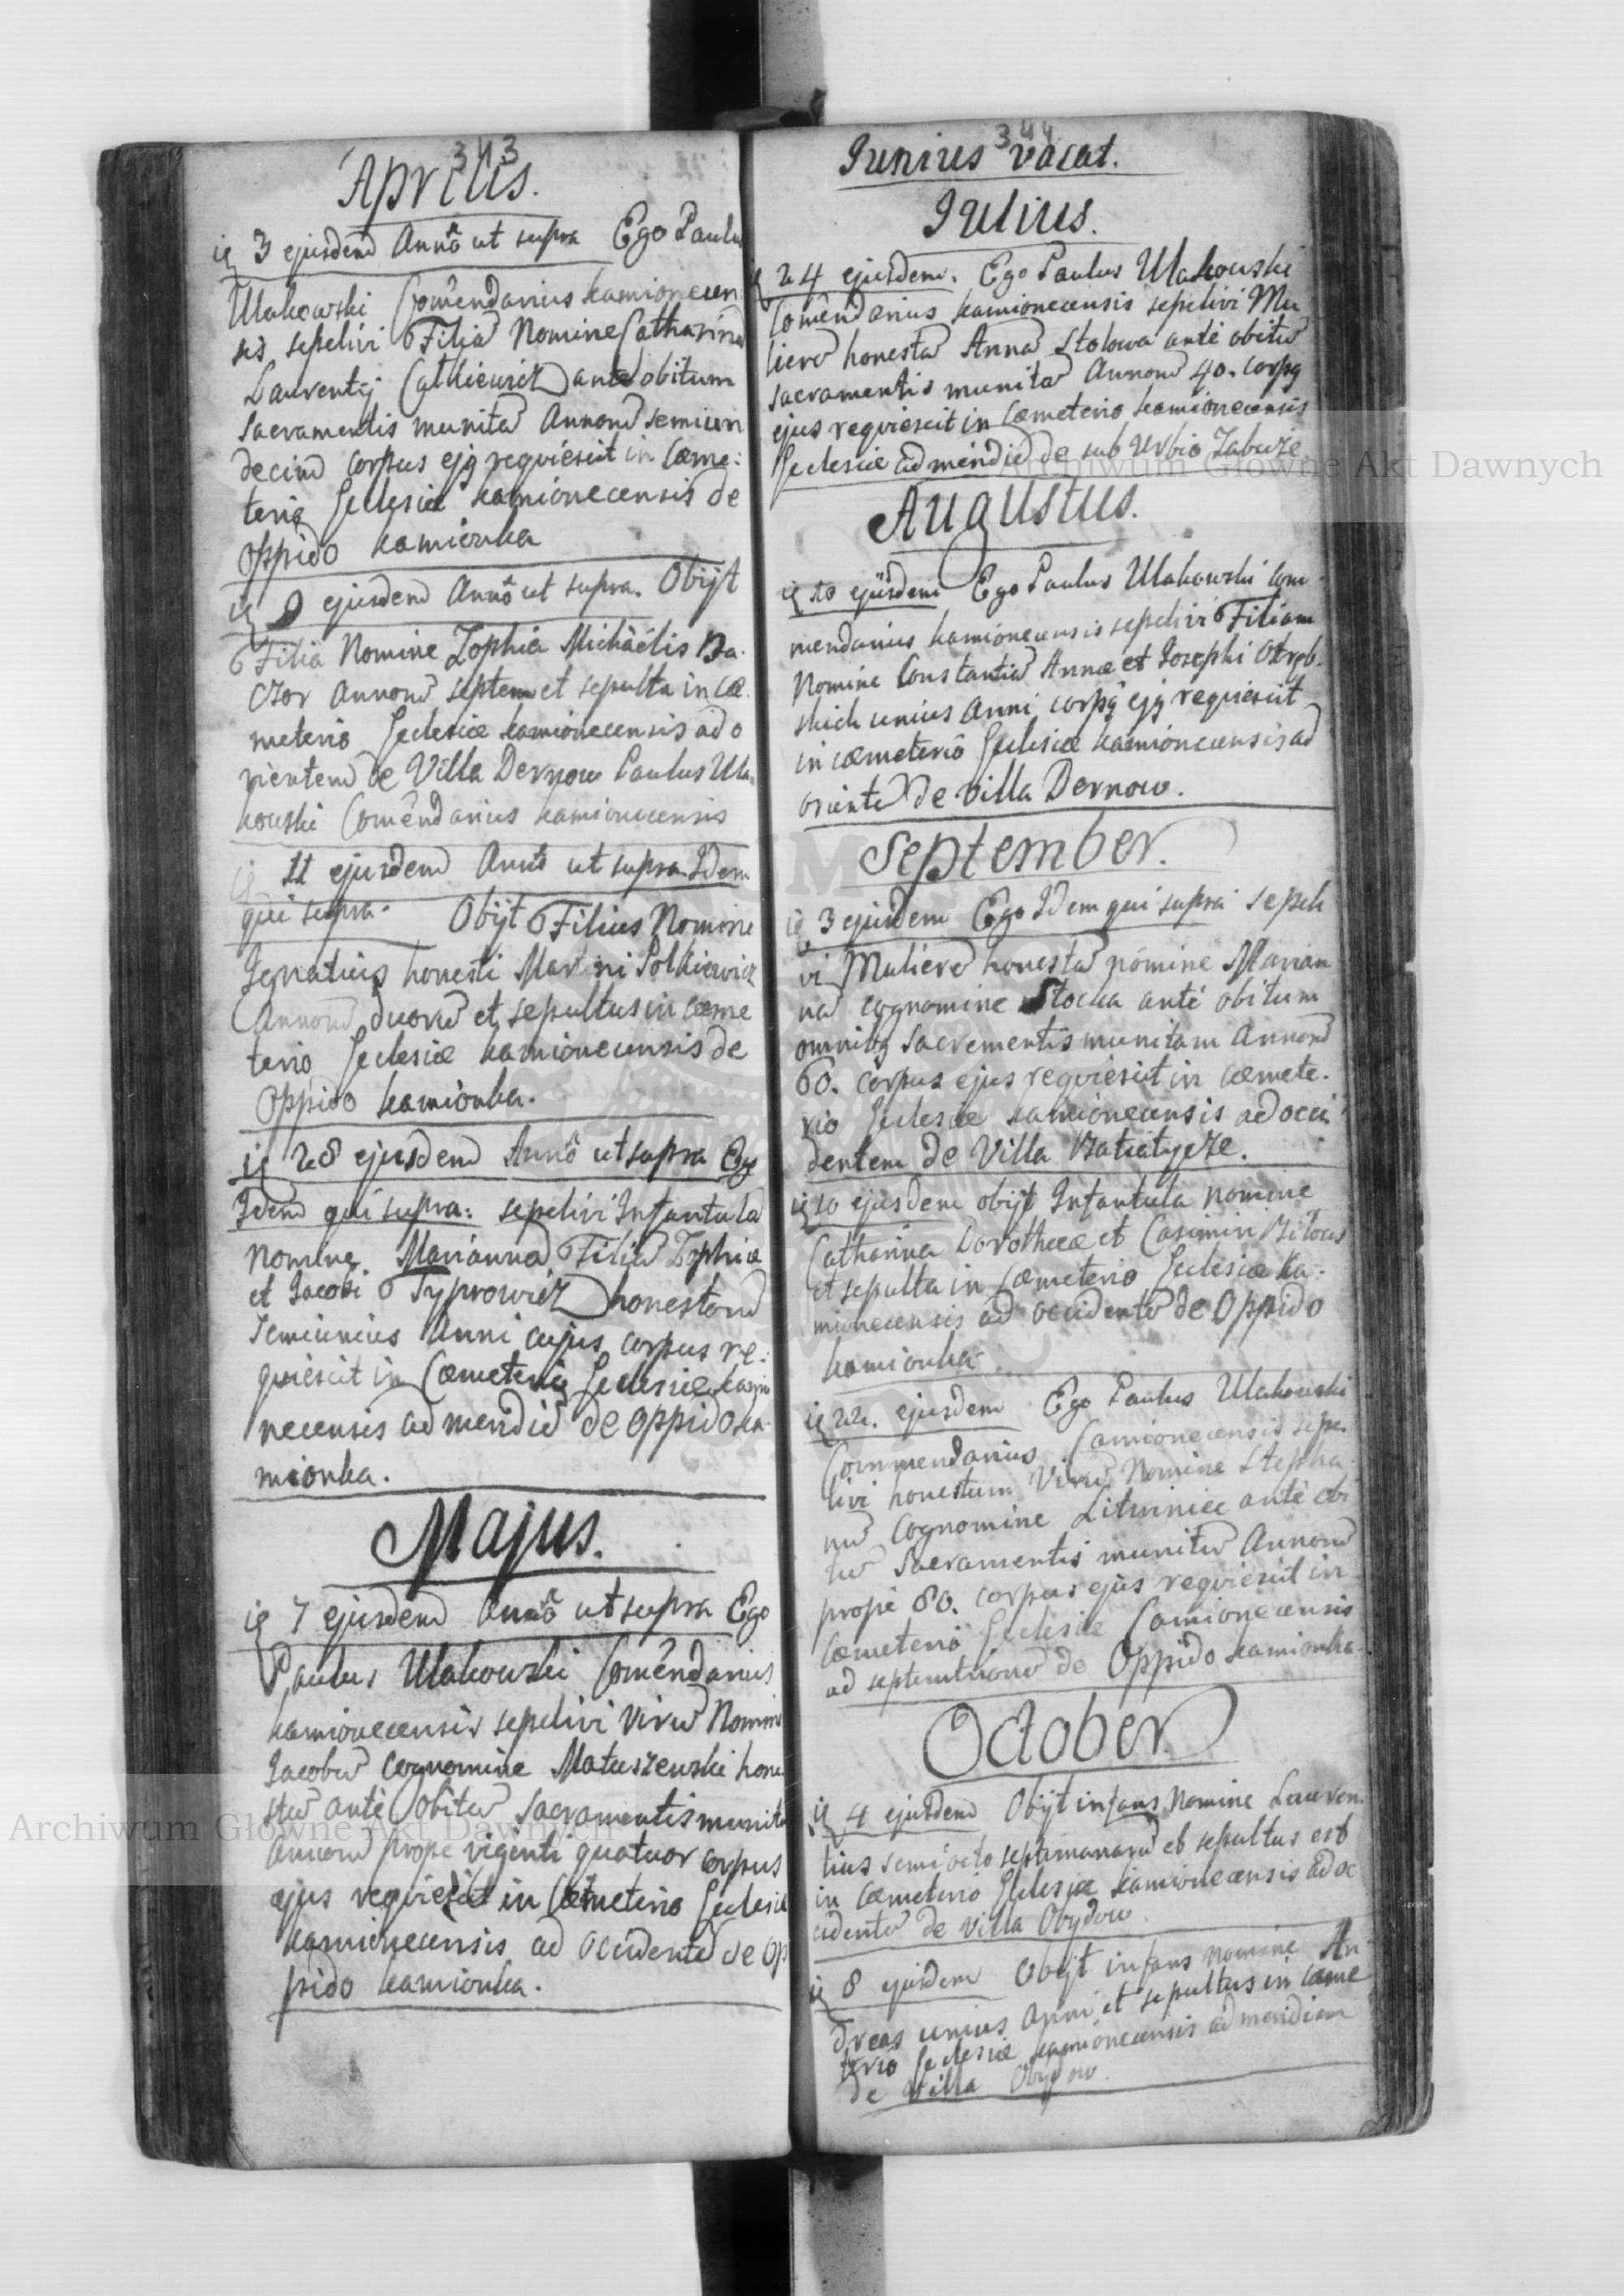 343
Aprilis.
3 ejusdem Annô ut supra Ego Paulu
Ulakowski Comêndarius Kamionecen
sis sepelivi Filiã Nomine Catharinã
Laurentij antè obitum
Sacramentis munitã Annorũ semiun
decim corpus ejq requiescit in Cœme:
terio Ecclesiæ Kamionecensis de
Oppido Kamionka
9 ejusdem Annô ut supra. Obijt
Filia Nomine Zophia Michaëlis Ba
czor Annorũ septem et sepulta in cœ
meterio Ecclesiæ Kamionecensis ad o
rientem de Villa Dernow Paulus Ula
kowski Comêndarius Kamionecensis
11 ejusdem Annô ut supra Idem
qui supra. Obijt Filius Nomine
Ignatius honesti Martini Polkiewicz
Annorũ duorũ et sepultus in cœme
terio Ecclesiæ Kamionecensis de
Oppido Kamionka.
28 ejusdem Annô ut supra Ego
Idem qui supra: sepelivi Infantulã
Nomine Mariannã Filiã Zophiæ
et Jacobi Typrowicz honestorũ
semiunius Anni cujus corpus re:
quiescit in Cœmeterio Ecclesiæ Kamio
necensis ad meridiẽ de Oppido Ka
mionka.
Majus.
7 ejusdem Annô ut supra Ego
Paulus Ulakowski Comêndarius
Kamionecensis sepelivi Virũ Nomine
Jacobũ Cognomine Matuszewski hone
stũ antè Obitũ Sacramentis munitũ
Annorũ prope viginti quatuor corpus
ejus requiescit in Cœmeterio Ecclesiæ
Kamionecensis ad Occidentẽ de Op
pido Kamionka.
344
Iunius vacat.
Iulius.
24 ejusdem. Ego Paulus Ulakowski
Comêndarius Kamionecensis sepelivi Mu
lierẽ honestã Annã Stolowa antè obitũ
sacramentis munitã Annorũ 40. corpq
ejus requiescit in Cœmeterio Kamionecensis
Ecclesiæ ad meridiẽ de sub Urbio Zabuże
Augustus.
10 ejusdem Ego Paulus Ulakowski Com
mendarius Kamionecensis sepelivi Filiam
Nomine Constantiã Annæ et Josephi
unius Anni corpq ejq requiescit
in cœmeteriô Ecclesiæ Kamionecensis ad
orientẽ de Villa Dernow.
September.
3 ejusdem Ego Idem qui supra sepeli
vi Mulierẽ honestã nomine Marian
nã cognomine Stocka antè obitum
omnibq Sacrementis munitam Annorũ
60. corpus ejus requiescit in cœmete.
rio Ecclesiæ Kamionecensis ad occi
dentem de Villa Batiatycze.
10 ejusdem obijt Infantula nomine
Catharina Dorotheæ et Casimiri Bilous
et sepulta in Cœmeterio Ecclesiæ Ka:
mionecensis ad occidentẽ de Oppido
Kamionka
22. ejusdem Ego Paulus Ulakowski
Commendarius Camionecensis sepe
livi honestum Virũ Nomine Stepha
nũ Cognomine Litwiniec antè obi
tũ Sacramentis munitũ Annorũ
propè 80. corpus ejus requiescit in
Cœmeteriô Ecclesiæ Camionecensis
ad septemtrionẽ de Oppido Kamionka
October.
4 ejusdem Obijt infans Nomine Lauren
tius semi octo septimanarũ et sepultus est
in Cœmeterio Ecclesiæ Kamionecensis ad oc
cidentẽ de Villa Obydow
8 ejusdem Obijt infans nomine An
dreas unius Anni et sepultus in cœme
teriô Ecclesiæ Kamionecensis ad meridiem
de Villa Obydow.
Archiwum Główne Akt Dawnych
Archiwum Główne Akt Dawnych